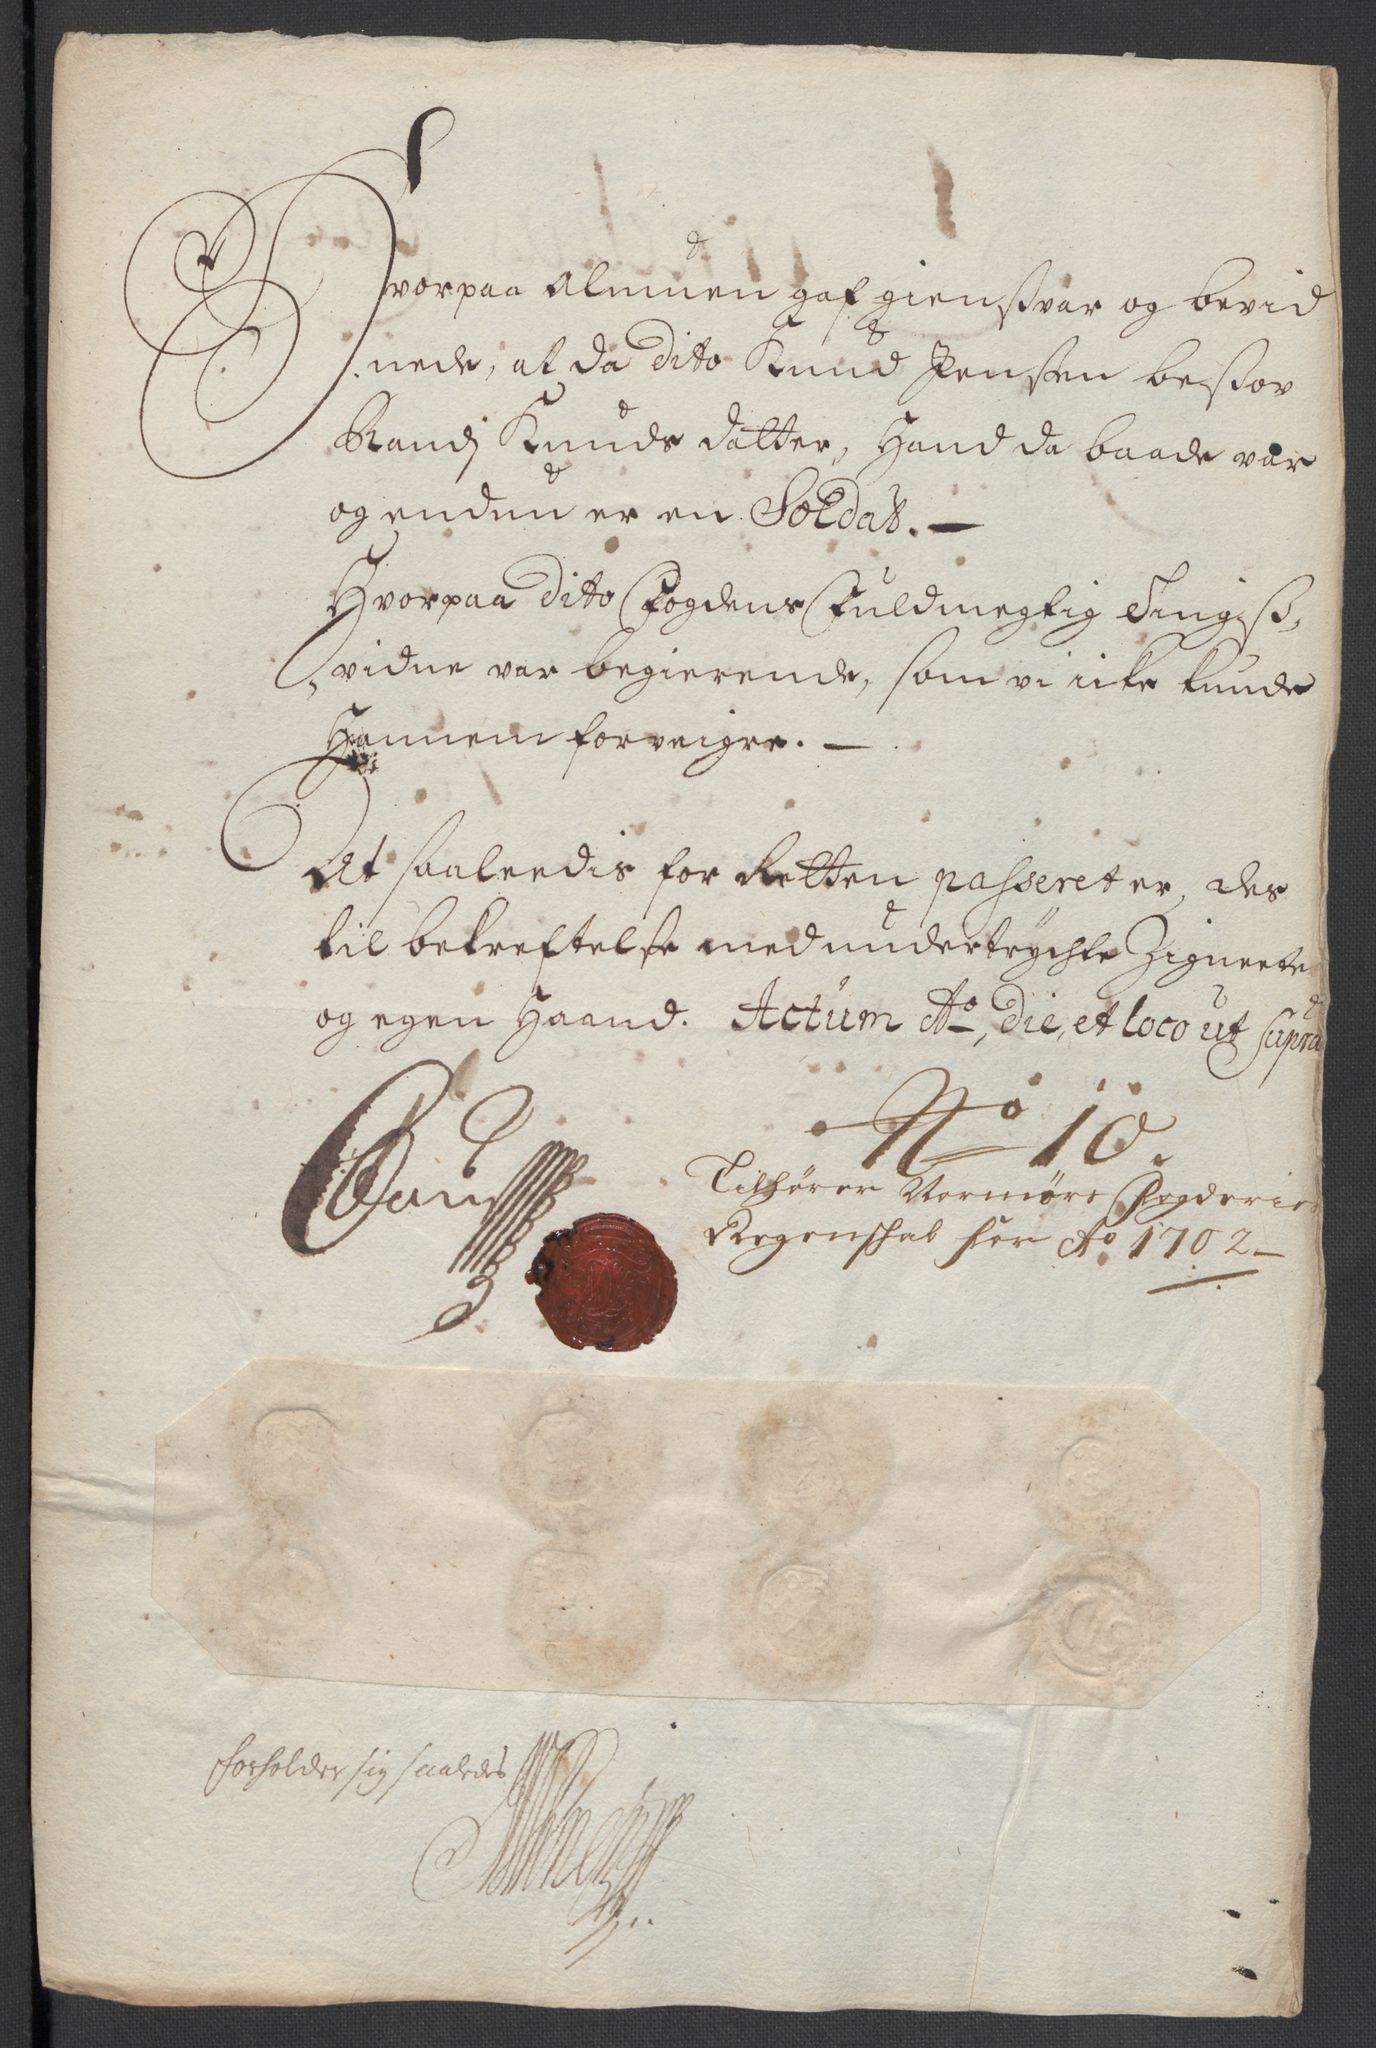 Hvorpaa Almuen gaf gienssvar og bevid
nede, at da dito Knud Jenssen bessov
Randj Knuds datter, Hand da baade var
og endnu er en Soldat. —
Hvorpaa dito Fogdens Fuldmegtig Tingss
vidne var begierende, som vi icke kunde
Hannem forveigre. —
At saaleedis for Retten passeret er, des
til bekreftelse med undertrychte Zigneete
og egen Haand. Actum Ao, die, et loco ut supra
No 10.
Tilhører Normørs Fogderies
Regenschab for Ao 1702 —
forholder sig saaledes